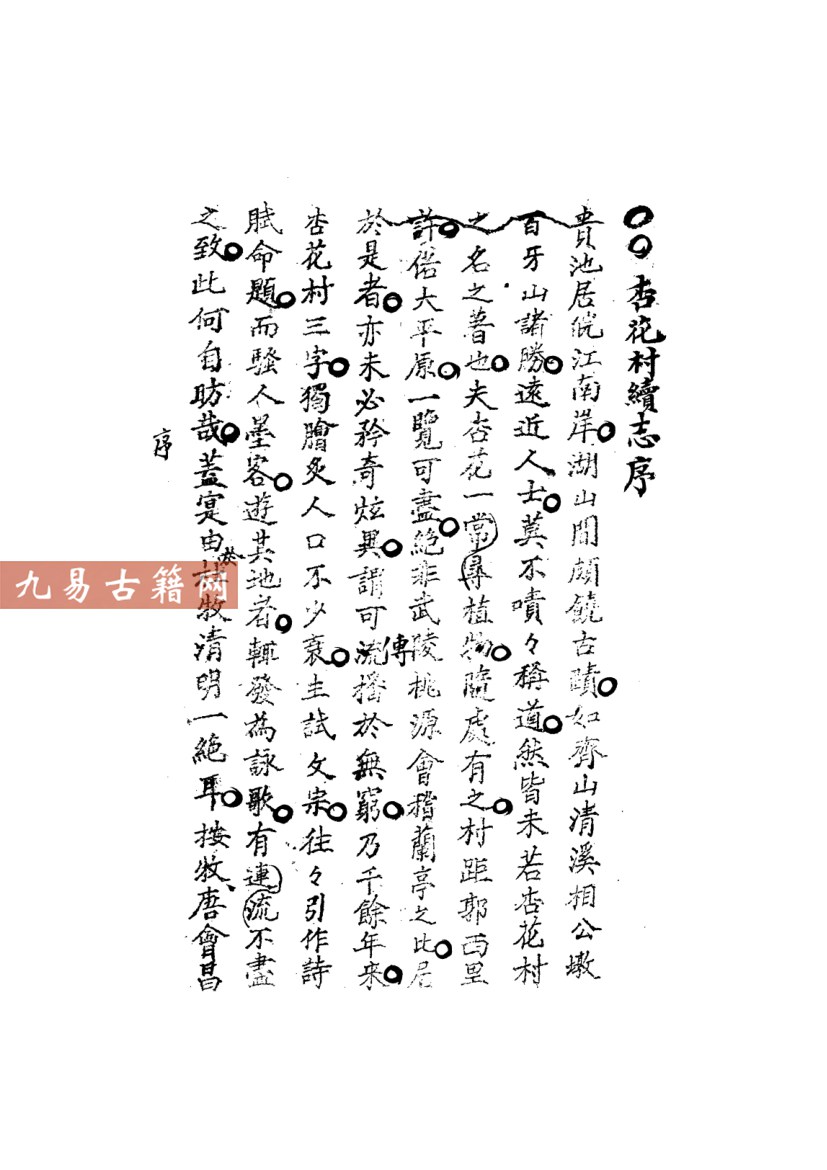 杏花村續志序
貴池居皖江南岸湖山間頗饒古蹟如齊山清溪相公墩
百牙山諸勝遠近人士莫不嘖々稱道然皆未若杏花村
之名之著也夫杏花一常尋植物隨處有之村距郭西里
許偌大平原一覽可盡絕非武陵桃源會稽蘭亭之比居
於是者亦未必矜奇炫異謂可流傳播於無窮乃千餘年來
杏花村三字獨膾炙人口不少衰主試文宗往々引作詩
賦命題而騷人墨客遊其地者輒發為詠歌有連流不盡
之致此何自昉哉蓋寔由於牧清明一絕耳按牧唐會昌
序
九易古籍网